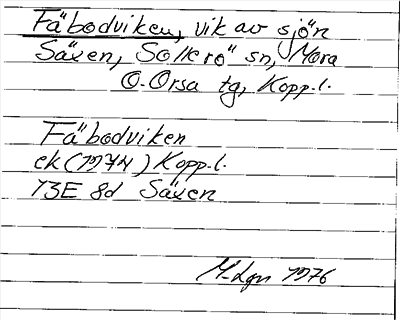 Fäbodviken, vik av sjön
Säxen, Sollerö sn, Mora
O. Orsa tg, Kopp. l.
Fäbodviken
ek (1974) Kopp. l.
13E 8d Säxen
M-Lgn 1976